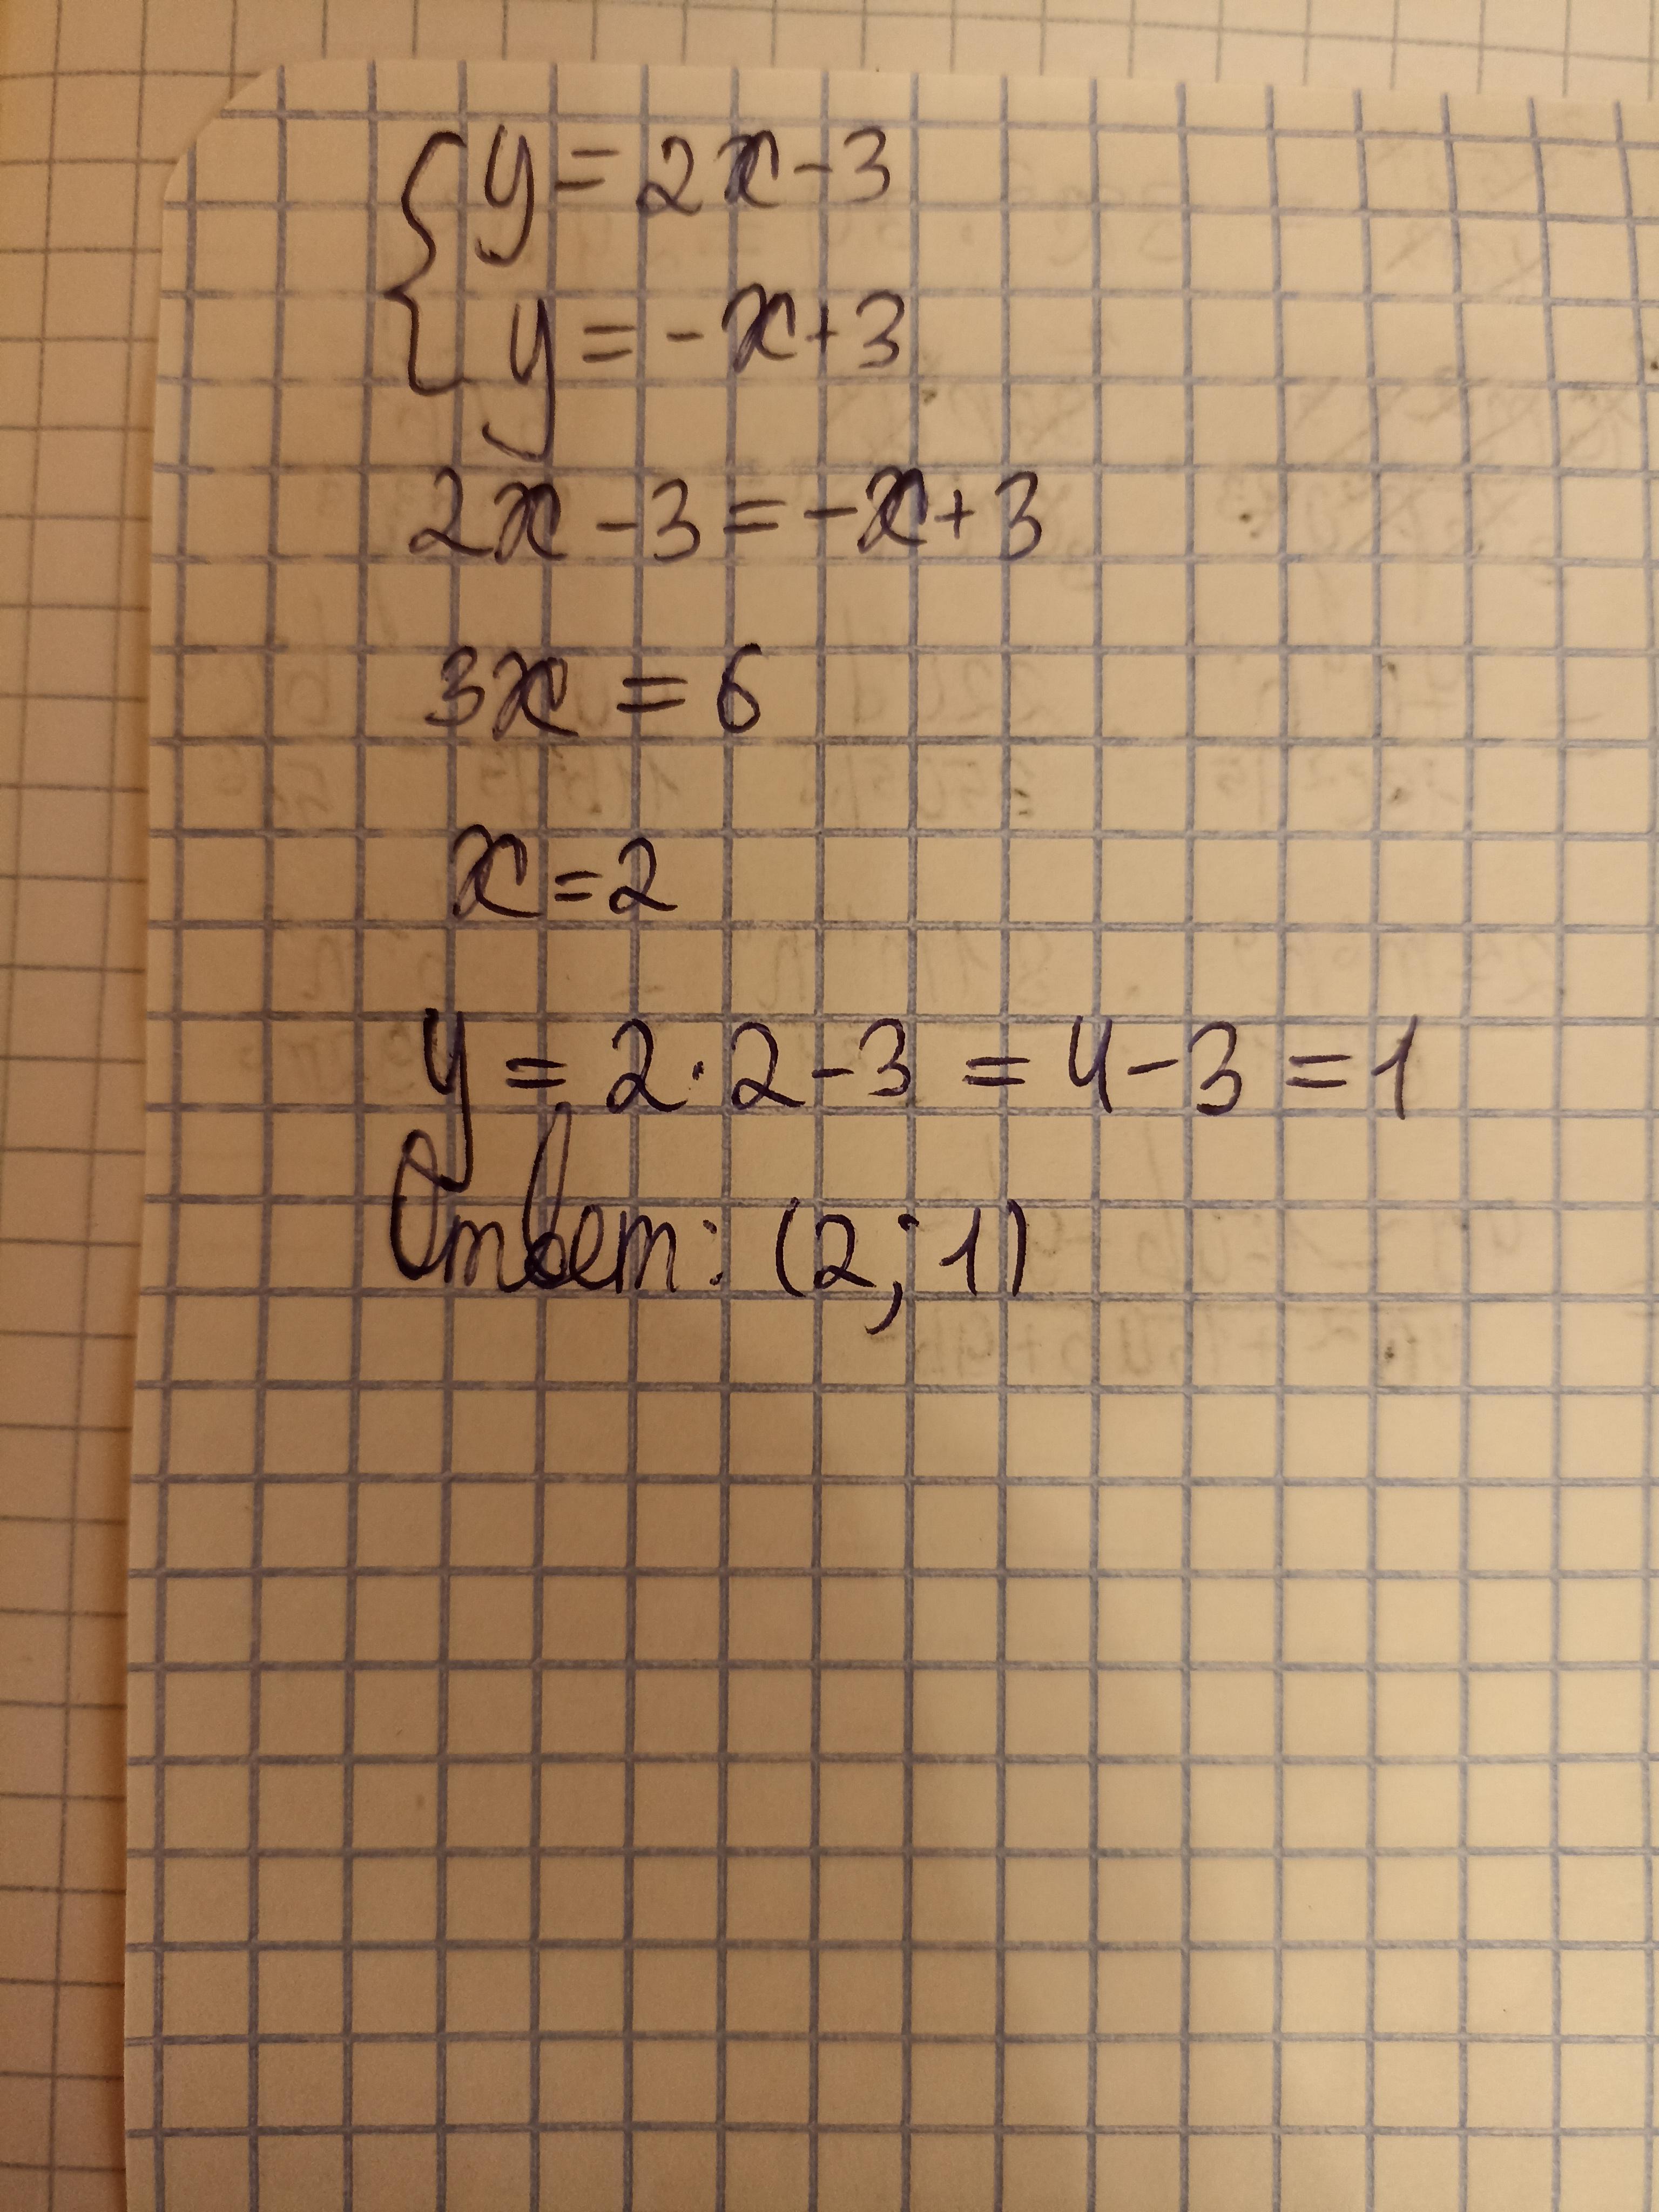 { y = 2x - 3
y = -x + 3
2x - 3 = -x + 3
3x = 6
x = 2
y = 2 · 2 - 3 = 4 - 3 = 1
Ответ: (2; 1)